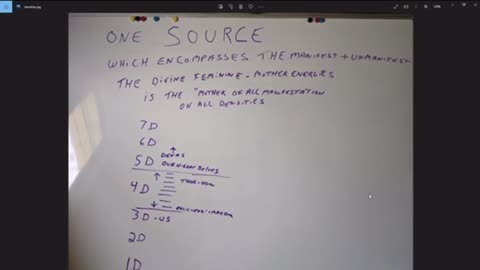 ONE SOURCE
WHICH ENCOMPASSES THE MANIFEST + UNMANIFEST
THE DIVINE FEMININE - MOTHER ENERGIES
IS THE "MOTHER OF ALL MANIFESTATION
ON ALL DENSITIES
7D
6D
5D DEVAS
OUR HIGHER SELVES
4D
3D - US
2D
1D